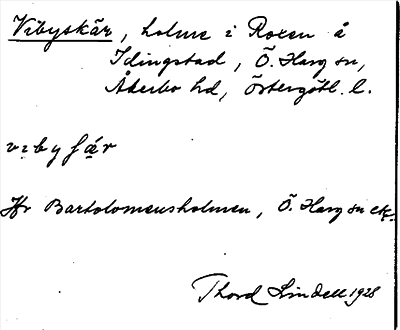 Vibyskär, holme i Roxen å
Idingstad, Ö. Harg sn,
Åkerbo hd, Östergötl. l.
vịbyʃä́r
Jfr Bartolomeusholmen, Ö. Harg sn etc.
Thord Lindell 1928